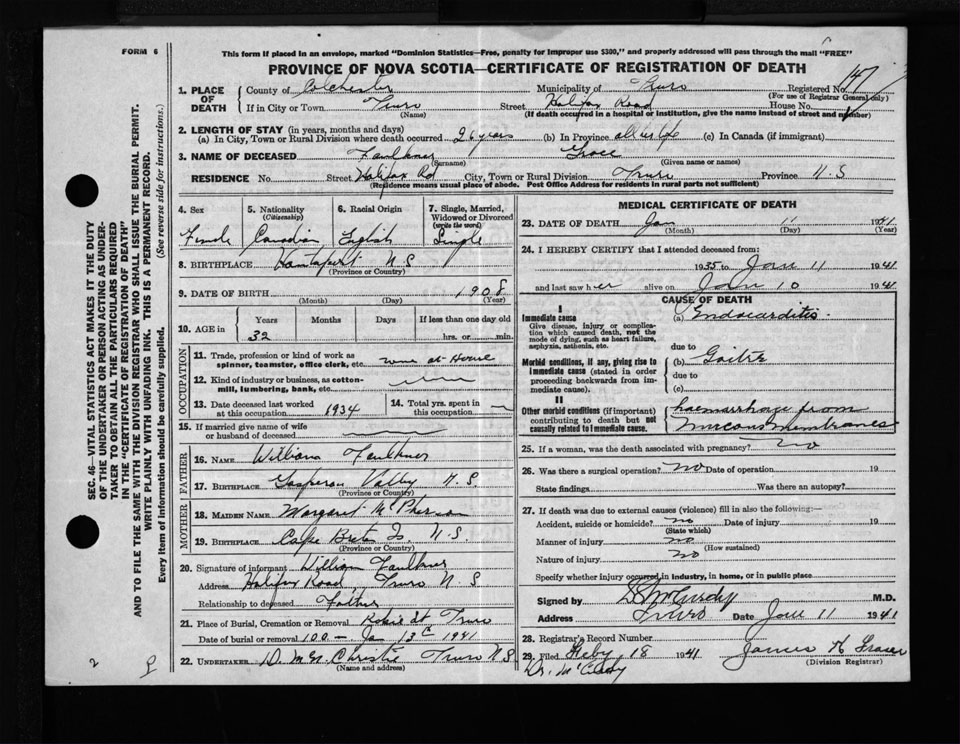 FORM 6
This form if placed in an envelope, marked "Dominion Statistics—Free, penalty for improper use $300," and properly addressed will pass through the mail "FREE"
PROVINCE OF NOVA SCOTIA—CERTIFICATE OF REGISTRATION OF DEATH
1. PLACE OF DEATH County of Colchester Municipality of Truro Registered No. 147
(For use of Registrar General only)
If in City or Town Truro Street Halifax Road House No.
(Name) (If death occurred in a hospital or institution, give the name instead of street and number)
2. LENGTH OF STAY (in years, months and days)
(a) In City, Town or Rural Division where death occurred 26 years (b) In Province all its life (c) In Canada (if immigrant)
3. NAME OF DECEASED Faulkner Grace
(Surname) (Given name or names)
RESIDENCE No. Street Halifax Rd City, Town or Rural Division Truro Province N.S
(Residence means usual place of abode. Post Office Address for residents in rural parts not sufficient)
4. Sex 5. Nationality (Citizenship) 6. Racial Origin 7. Single, Married, Widowed or Divorced (write the word)
Female Canadian English Single
8. BIRTHPLACE Hantsport N S
(Province or Country)
9. DATE OF BIRTH 1908
(Month) (Day) (Year)
10. AGE in Years Months Days If less than one day old
32 hrs. or min.
OCCUPATION
11. Trade, profession or kind of work as spinner, teamster, office clerk, etc. none at House
12. Kind of industry or business, as cotton-mill, lumbering, bank, etc.
13. Date deceased last worked at this occupation 1934 14. Total yrs. spent in this occupation
15. If married give name of wife or husband of deceased
FATHER
16. NAME William Faulkner
17. BIRTHPLACE Gasperau Valley N.S
(Province or Country)
MOTHER
18. MAIDEN NAME Margaret McPherson
19. BIRTHPLACE Cape Breton Is. N.S.
(Province or Country)
20. Signature of informant William Faulkner
Address Halifax Road Truro N S
Relationship to deceased Father
21. Place of Burial, Cremation or Removal Robie St Truro
Date of burial or removal Jan 13 1941
22. UNDERTAKER Christie Truro N S
(Name and address)
MEDICAL CERTIFICATE OF DEATH
23. DATE OF DEATH Jan 11 1941
(Month) (Day) (Year)
24. I HEREBY CERTIFY that I attended deceased from:
1935 to Jan 11 1941
and last saw her alive on Jan 10 1941
CAUSE OF DEATH
Immediate cause (a) Endocarditis
Give disease, injury or complication which caused death, not the mode of dying, such as heart failure, asphyxia, asthenia, etc.
due to
Morbid conditions, if any, giving rise to immediate cause (stated in order proceeding backwards from immediate cause). (b) Goitre
due to
(c)
II
Other morbid conditions (if important) contributing to death but not causally related to immediate cause. haemorrhage from mucous membranes
25. If a woman, was the death associated with pregnancy? no
26. Was there a surgical operation? no Date of operation 19
State findings Was there an autopsy?
27. If death was due to external causes (violence) fill in also the following:—
Accident, suicide or homicide? no Date of injury 19
(State which)
Manner of injury no
(How sustained)
Nature of injury no
Specify whether injury occurred in industry, in home, or in public place
Signed by McCurdy M.D.
Address Truro Date Jan 11 1941
28. Registrar's Record Number
29. Filed Feby 18 1941 James Fraser
(Division Registrar)
Dr. McCurdy
SEC. 46— VITAL STATISTICS ACT MAKES IT THE DUTY
OF THE UNDERTAKER OR PERSON ACTING AS UNDER-
TAKER TO OBTAIN ALL THE PARTICULARS REQUIRED
IN THE "CERTIFICATE OF REGISTRATION OF DEATH"
AND TO FILE THE SAME WITH THE DIVISION REGISTRAR WHO SHALL ISSUE THE BURIAL PERMIT.
WRITE PLAINLY WITH UNFADING INK. THIS IS A PERMANENT RECORD.
Every item of information should be carefully supplied. (See reverse side for instructions.)
2